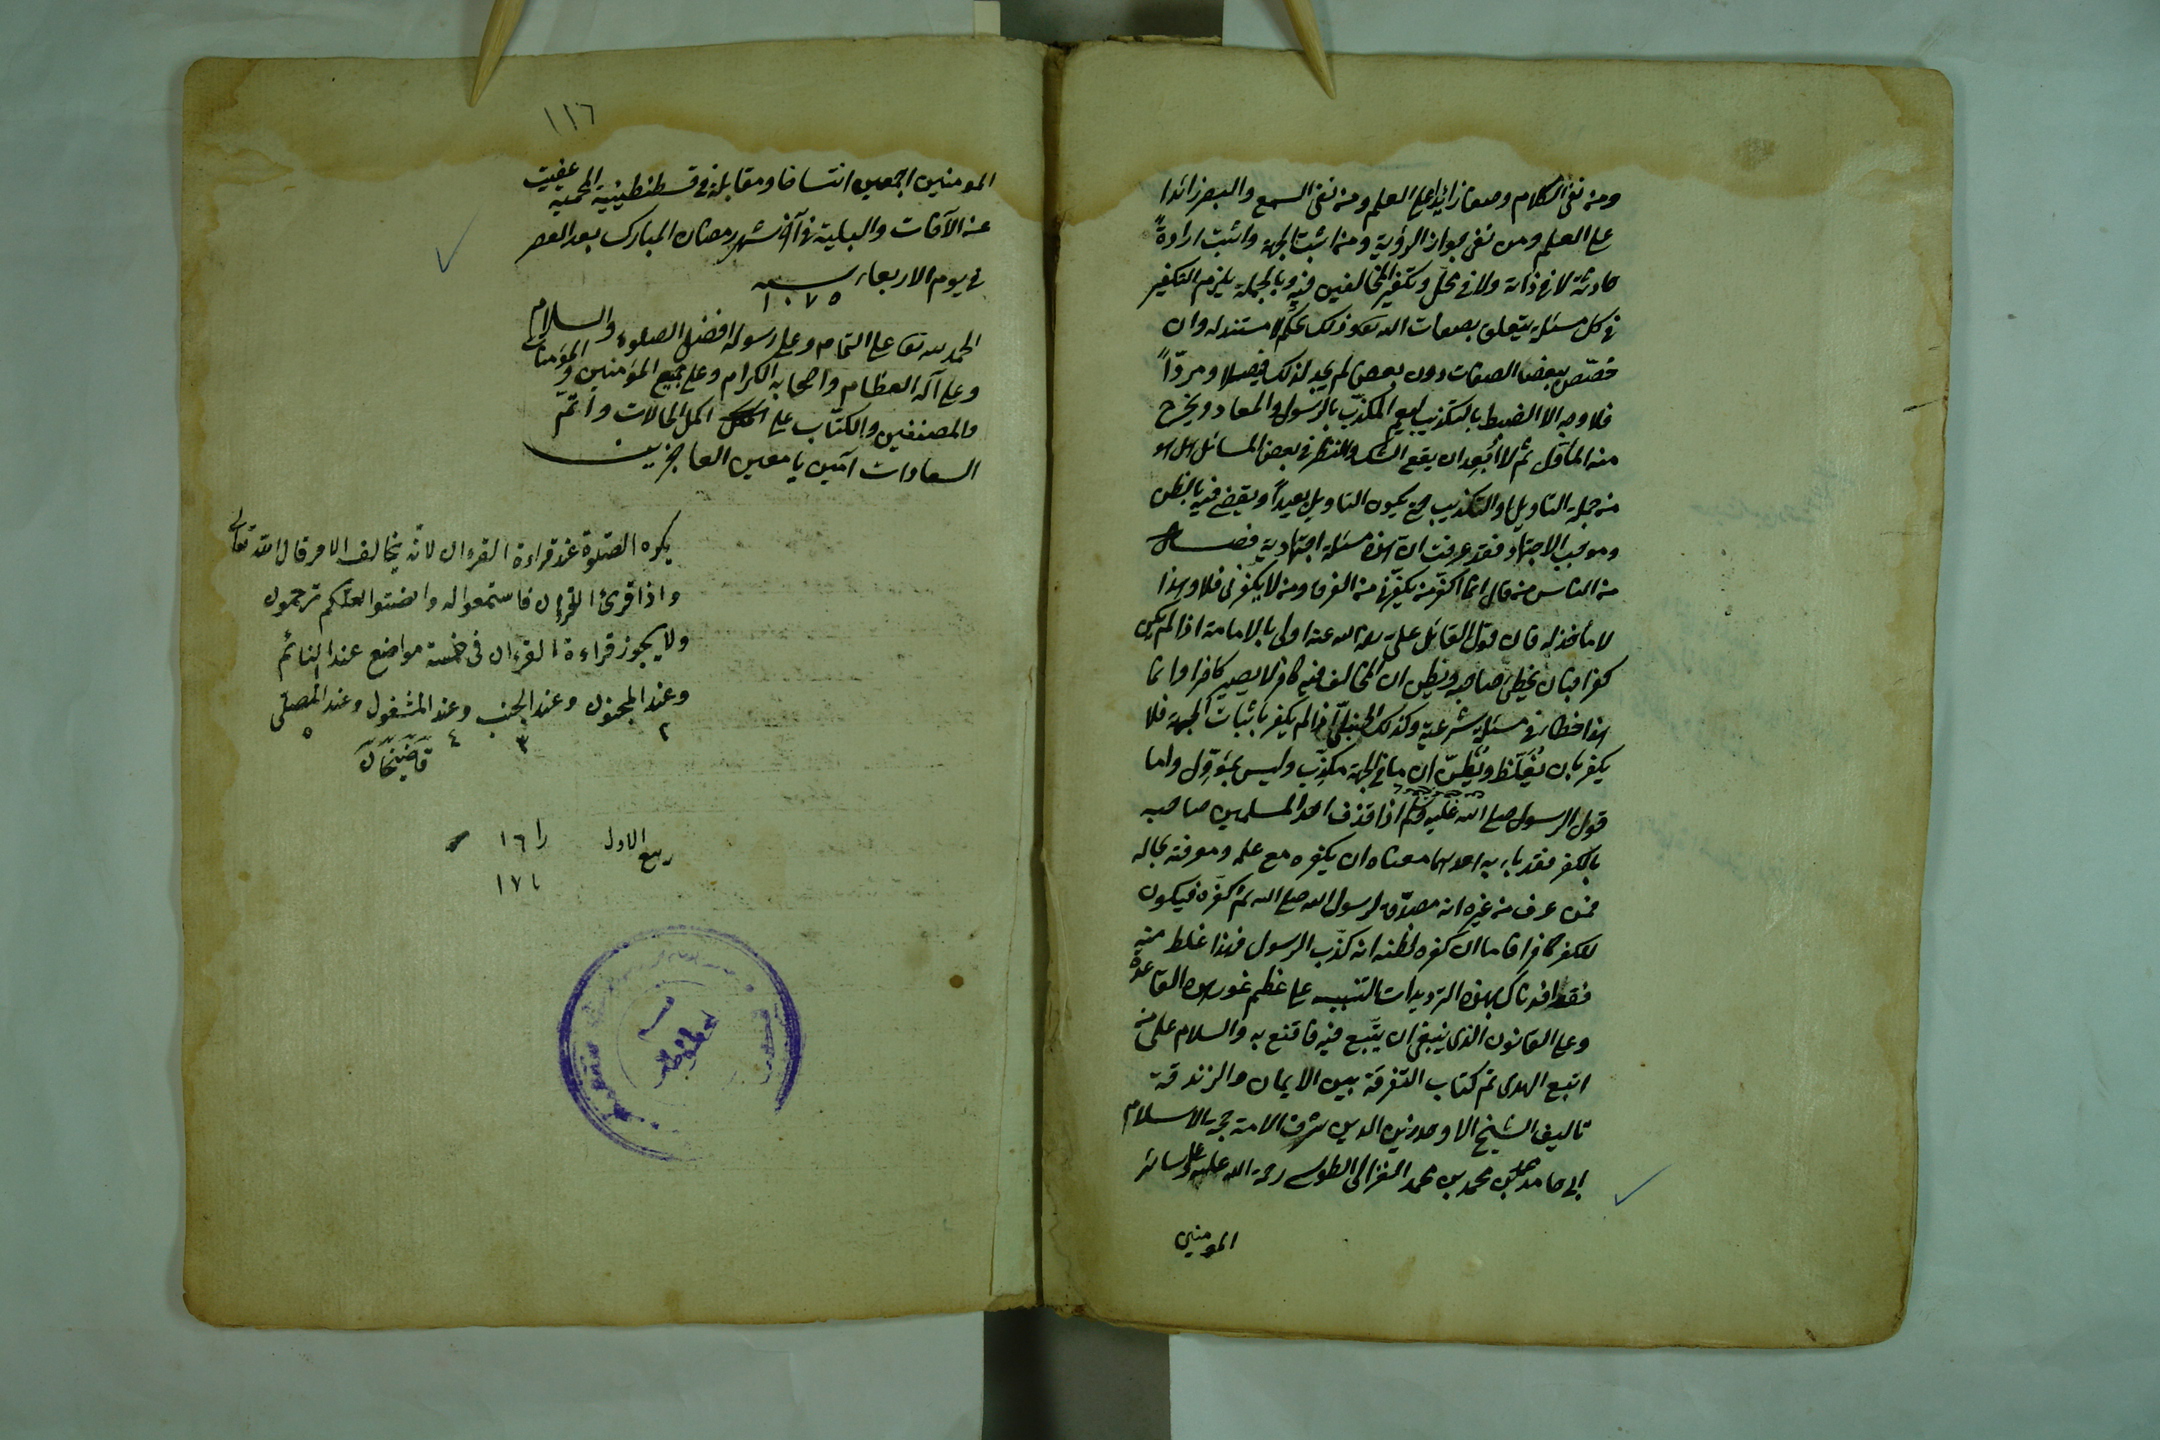 ومنه نفى الكلام وصفا زائدا على العلم ومنه نفى السمع والبصر زائدا
على العلم ومن نفى جواز الرؤية ومنه اثبت الجهة واثبت ارادةً
حادثة لا فى ذاته ولا فى محل وتكفير المخالفين فيه وبالجملة يلزم التكفير
فى كل مسئلة يتعلق بصفات الله تعا وذلك تحكم لا مستند له وان
خصّص ببعض الصفات دون بعض لم يجد لذلك فيصلا ومردّاً
فلا وجه الا الضبط بالتكذيب ليعم المكذّب بالرسول والمعاد ويخرج
منه المأوّل ثم لا أُبعِد ان يقع الشك والنظر فى بعض المسائل
منه جملة التاويل او التكذيب حتى يكون التاويل بعيداً ويقضى فيه بالظن
وموجب الاجتهاد فقد عرفت ان هذه مسئلة اجتهادية فصل
منه الناس منه قال انما اكفّر منه يكفّرنى منه الفرق ومنه لا يكفرنى فلا وهذا
لا مأخذ له فان قول القائل على رضى الله عنه اولى بالامامة اذا لم يكن
كفرا فبان يخطئ صاحبه ويظن ان المخالف فيه كافر لا يصير كافرا وانما
هذا خطا فى مسئلة شرعية وكذلك الحنبلىّ اذا لم يكفر باثبات الجهة فلا
يكفر بان يُغَلّظ ويُظَنّ ان نافى الجهة مكذّب وليس بمتؤول واما
قول الرسول صلى الله عليه وسلم اذا قذف احد المسلمين صاحبه
بالكفر فقد باء به احدهما معناه ان يكفره مع علمه ومعرفته بحاله
فمن عرف منه غيره انه مصدّق لرسول الله صلى الله ثم كفّره فيكون
للكفر كافرا فاما ان كفره لظنه انه كذّب الرسول فهذا غلط منه
فقد افدناك بهذه الترديدات التنبيه على عظم غور هذه القاعدة
وعلى القانون الذى ينبغى ان يتّبع فيه فاقنع به والسلام على منه
اتبع الهدى تم كتاب التفرقة بين الايمان والزندقة
تاليف الشيخ الاوحد زين الدين شرف الامة حجة الاسلام
ابى حامد محمد بن محمد بن محمد الغزالى الطوسى رحمة الله عليه وعلى سائر
المومنين
١١٦
المومنين اجمعين انتساخا ومقابلة فى قسطنطينية المحميه عفيت
عنه الآفات والبلية فى آخر شهر رمضان المبارك بعد العصر
فى يوم الاربعاء سنه
١٠٧٥
الحمد لله تعا على التمام وعلى رسوله افضل الصلوة والسلام
وعلى آله العظام واصحابه الكرام وعلى جميع المؤمنين والمؤمنات
والمصنفين والكتّاب على اكمل الحالات وأتمّ
السعادات آمين يا معين العاجزين
يكره الصّلوة عند قراءة القرءان لانّه يخالف الامر قال الله تعالى
واذا قرئ القرءان فاستمعوا له وانصتوا لعلّكم ترحمون
ولا يجوز قراءة القرءان فى خمسة مواضع عند النائم
وعند المجنون وعند الجنب وعند المشغول وعند المصلّى
٢ ٣ ٤ ٥
قاضيخان
ربيع الاول را ١٦
١٧٨